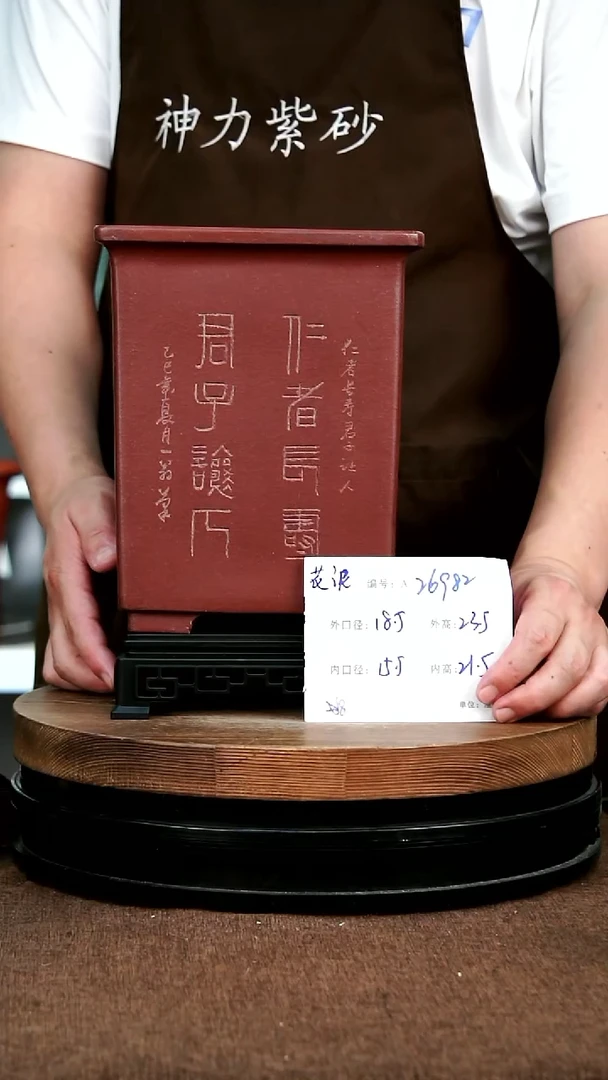 神力紫砂
仁者長壽君子讓人
仁者長壽
君子讓人
乙巳年夏月一
花泥 编号:A 26982
外口径:18.5 外高:23.5
内口径:15.5 内高:21.5
单位: